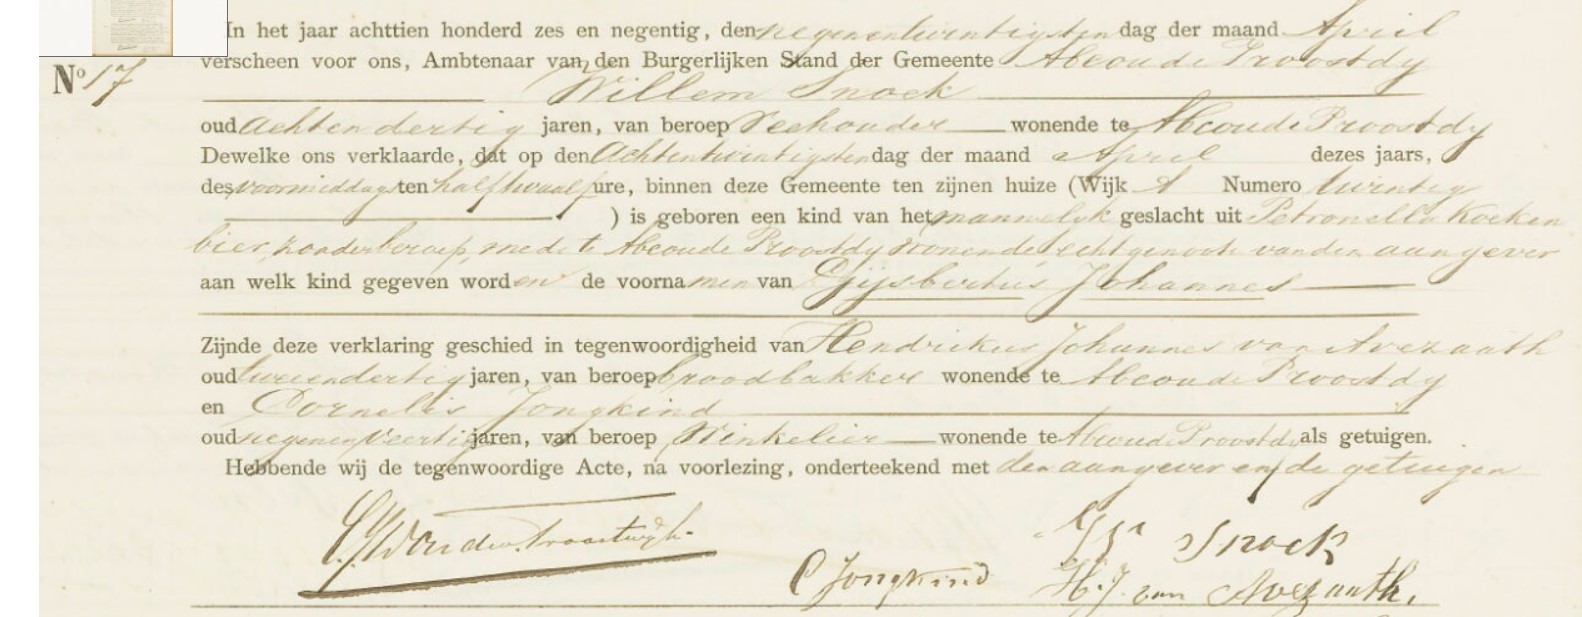 In het jaar achttien honderd zes en negentig, den negenentwintigsten dag der maand April
verscheen voor ons, Ambtenaar van den Burgerlijken Stand der Gemeente Abcoude Proostdy
No 17
Willem Snoek
oud achtendertig jaren, van beroep Veehouder wonende te Abcoude Proostdy
Dewelke ons verklaarde, dat op den Achtentwintigsten dag der maand April dezes jaars,
des voormiddags ten half twaalf ure, binnen deze Gemeente ten zijnen huize (Wijk A Numero twintig
) is geboren een kind van het mannelyk geslacht uit Petronella Koeken
bier, zonder beroep, mede te Abcoude Proostdy wonende echtgenoote van den aangever
aan welk kind gegeven worden de voornamen van Gijsbertus Johannes
Zijnde deze verklaring geschied in tegenwoordigheid van Hendrikus Johannes van Avezaath
oud tweeendertig jaren, van beroep broodbakker wonende te Abcoude Proostdy
en Cornelis Jongkind
oud negenenveertig jaren, van beroep Winkelier wonende te Abcoude Proostdy als getuigen.
Hebbende wij de tegenwoordige Acte, na voorlezing, onderteekend met den aangever en de getuigen
Snoek
C Jongkind H. J. van Avezaath.